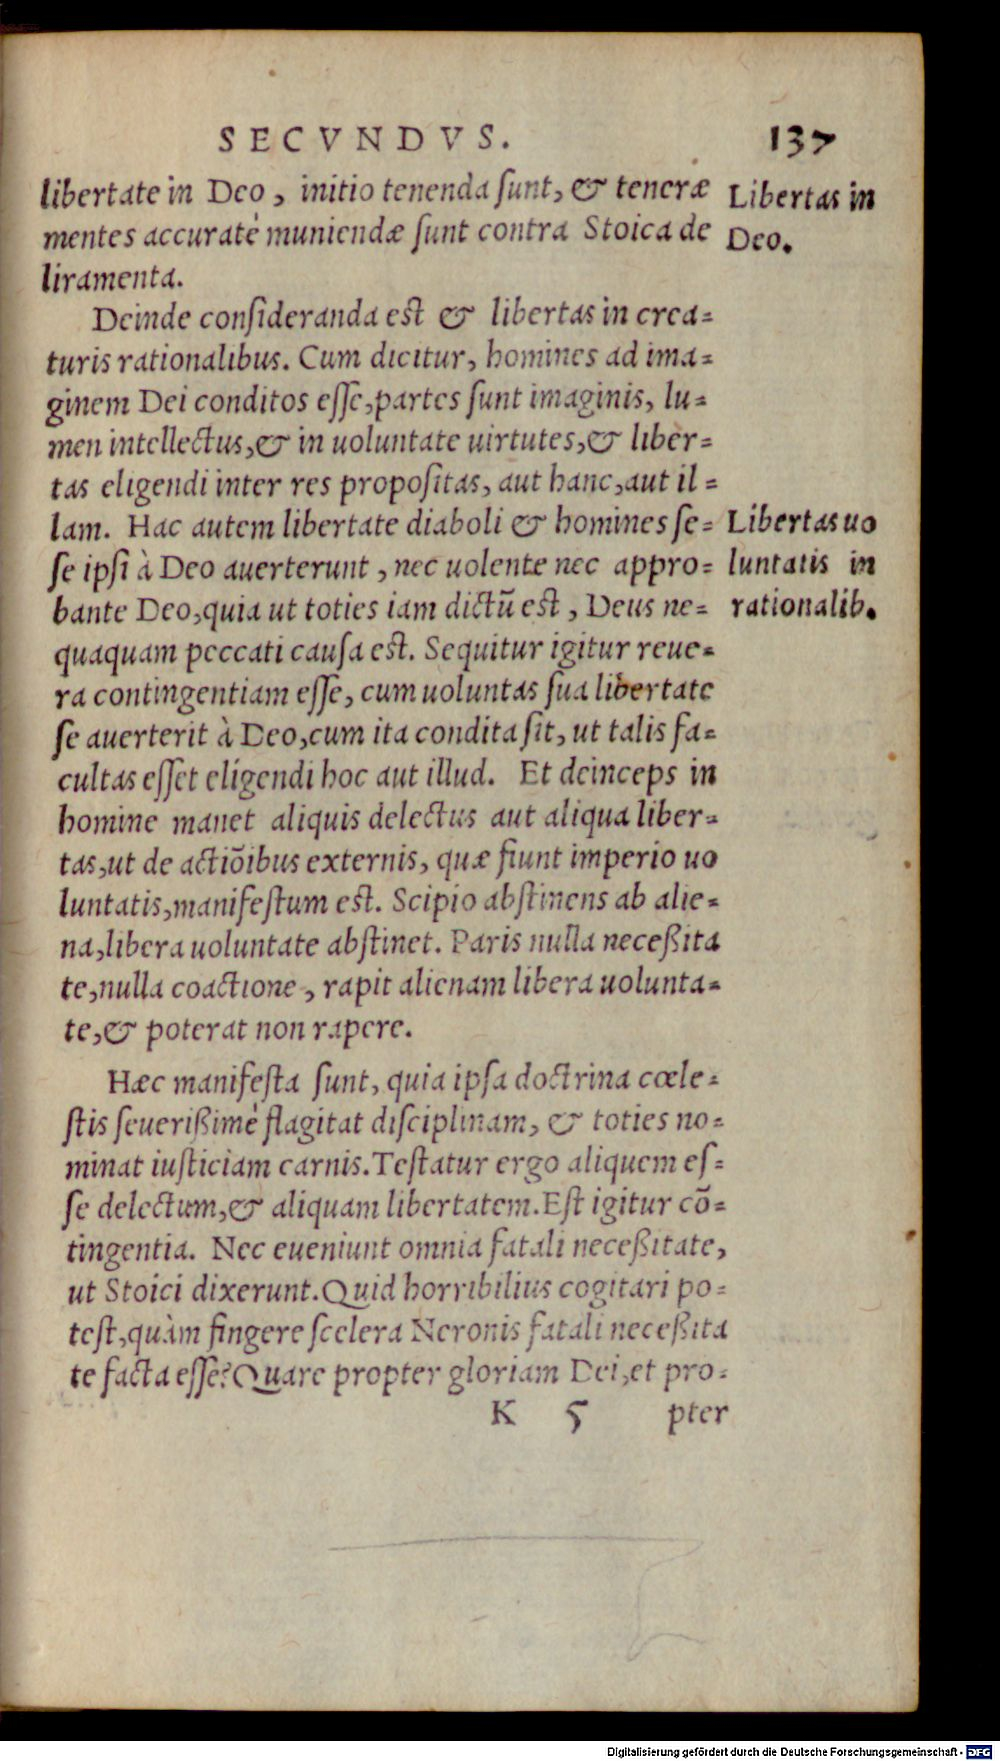 SECVNDVS. 137
libertate in Deo, initio tenenda sunt, & teneræ
Libertas in
mentes accuratè muniendæ sunt contra Stoica de
Deo.
liramenta.
Deinde consideranda est & libertas in crea=
turis rationalibus. Cum dicitur, homines ad ima=
ginem Dei conditos esse, partes sunt imaginis, lu=
men intellectus, & in uoluntate uirtutes, & liber=
tas eligendi inter res propositas, aut hanc, aut il=
lam. Hac autem libertate diaboli & homines se=
Libertas uo
se ipsi à Deo auerterunt, nec uolente nec appro=
luntatis in
bante Deo, quia ut toties iam dictũ est, Deus ne=
rationalib.
quaquam peccati causa est. Sequitur igitur reue=
ra contingentiam esse, cum uoluntas sua libertate
se auerterit à Deo, cum ita condita sit, ut talis fa=
cultas esset eligendi hoc aut illud. Et deinceps in
homine manet aliquis delectus aut aliqua liber=
tas, ut de actiõibus externis, quæ fiunt imperio uo
luntatis, manifestum est. Scipio abstinens ab alie=
na, libera uoluntate abstinet. Paris nulla neceßita
te, nulla coactione, rapit alienam libera uolunta=
te, & poterat non rapere.
Hæc manifesta sunt, quia ipsa doctrina cœle=
stis seuerißimè flagitat disciplinam, & toties no=
minat iusticiam carnis. Testatur ergo aliquem es=
se delectum, & aliquam libertatem. Est igitur cõ=
tingentia. Nec eueniunt omnia fatali neceßitate,
ut Stoici dixerunt. Quid horribilius cogitari po=
test, quàm fingere scelera Neronis fatali neceßita
te facta esse? Quare propter gloriam Dei, et pro=
K 5 pter
Digitalisierung gefördert durch die Deutsche Forschungsgemeinschaft - DFG